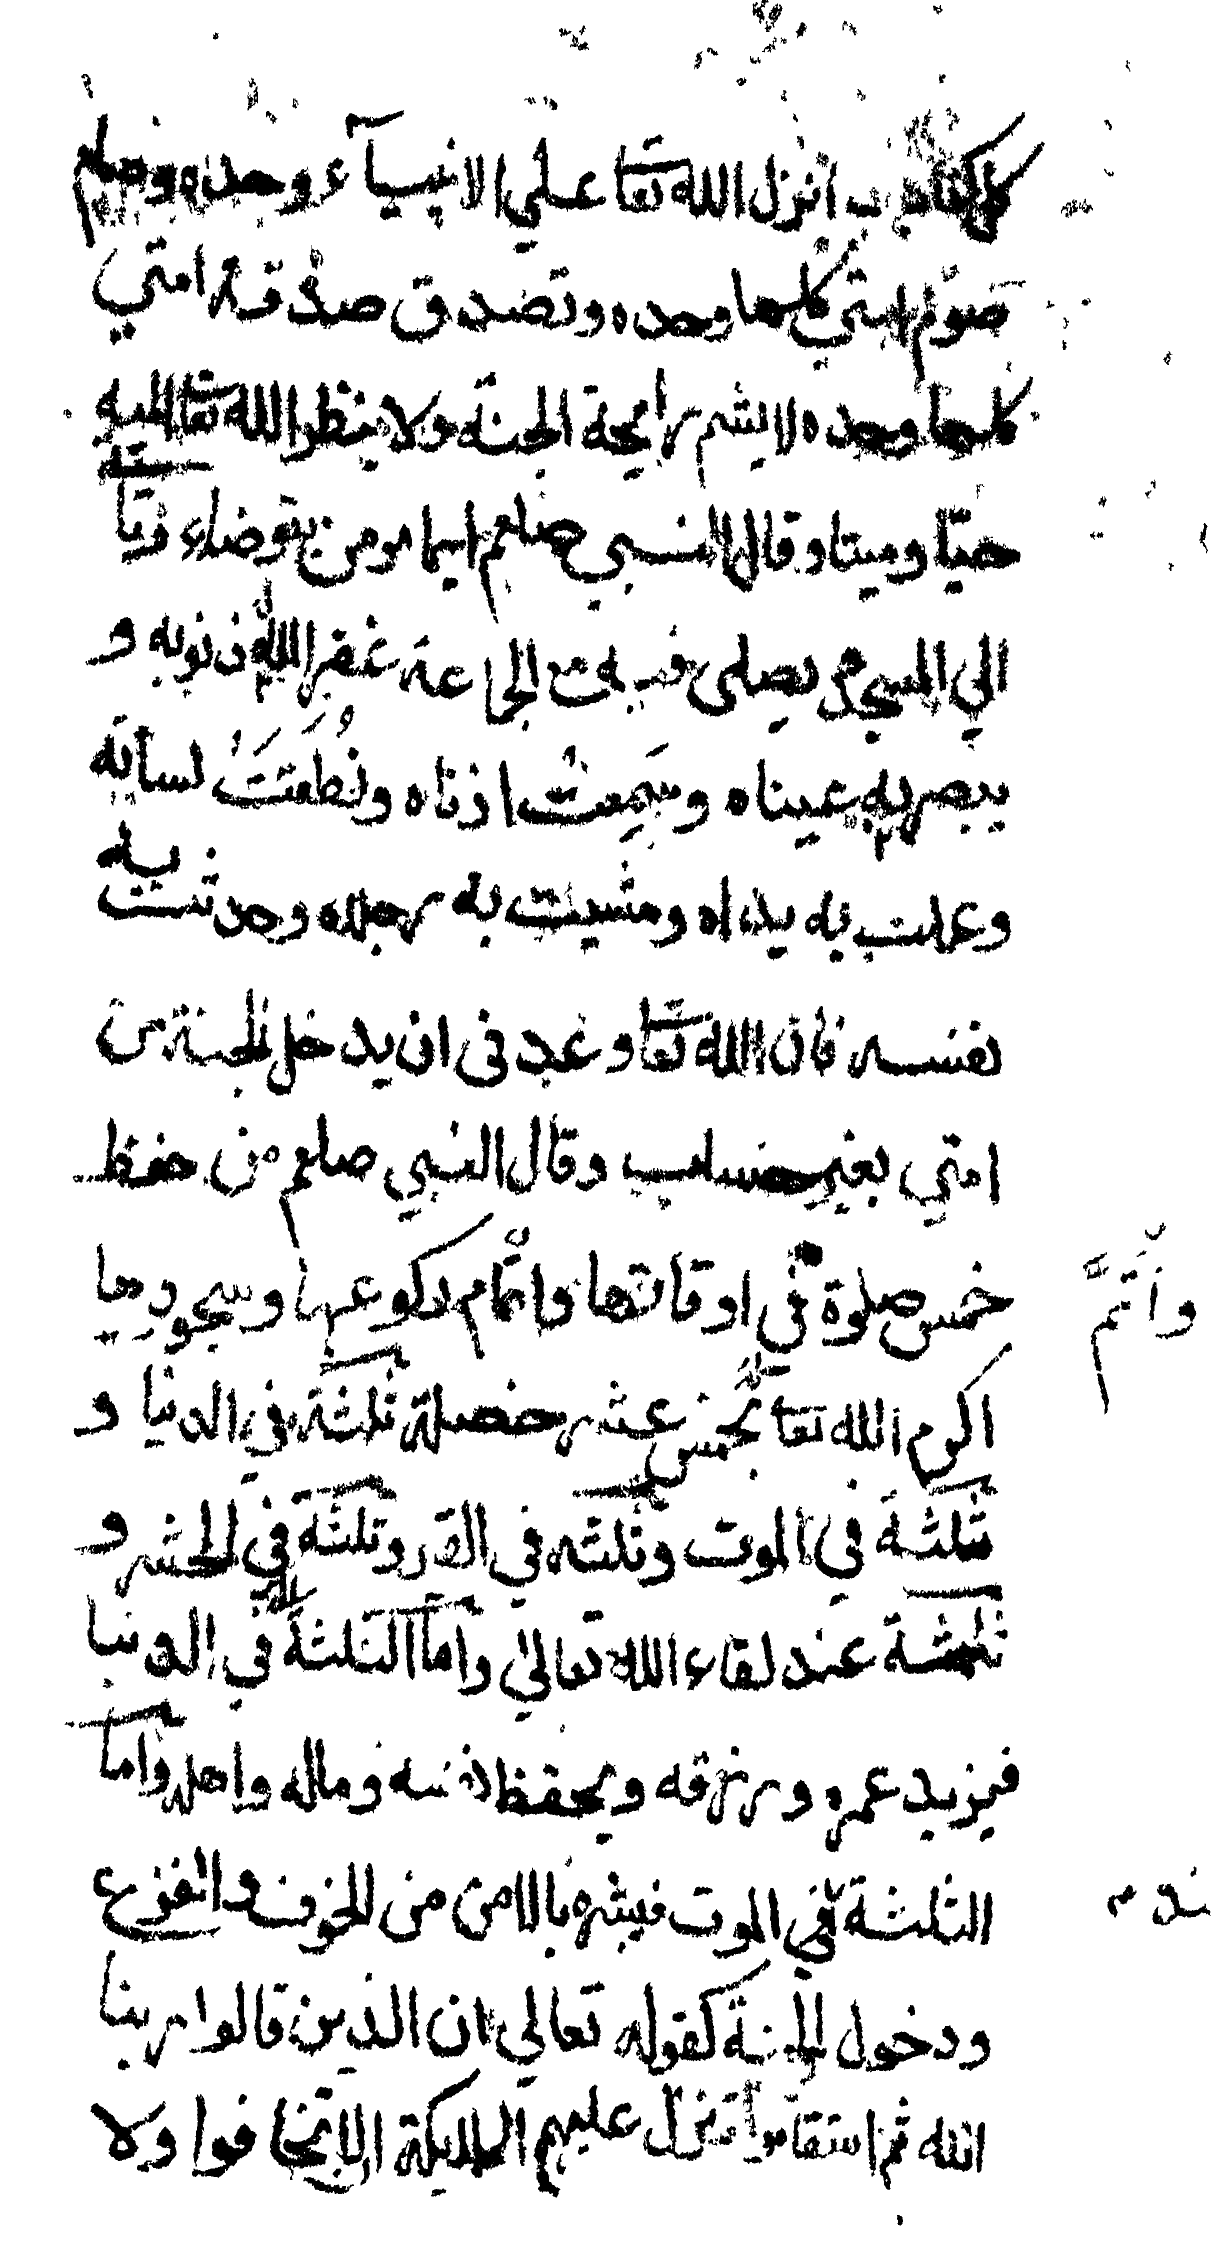 كل كتاب انزل الله تعا علي الانبيآء وحده وصام
صوم امتي كلها وحده وتصدق صدقة امتي
كلها وحده لا يشم رايحة الجنة ولا ينظر الله تعا اليه
حيّا وميتا وقال النبي صلعم ايما مومن يتوضاء وياتي
الي المسجد يصلى فيه مع الجاعة غفر الله ذنوبه و
يبصر به عيناه وسَمِعتْ اذناه ونُطَقَتَتْ لسانه
وعملت به يداه ومشيت به رجلاه وحدثت به
نفسه فان الله تعا وعد فى ان يدخل الجنة من
امتي بغير حساب وقال النبي صلعم من حفظ
خمس صلوة في اوقاتها واتمام ركوعها وسجودها
واتم
اكرم الله تعا بخمس عشر خصلة ثلثة في الدنيا و
ثلثة في الموت وثلثه في القبر وثلثة في الحشر و
ثلثة عند لقاء الله تعالي واما الثلثة في الدنيا
فيزيد عمره ورزقه ويحفظ نفسه وماله واهله واما
الثلثة في الموت فيبشره بالامن من الخوف والفزع
ودخول الجنة كقوله تعالي ان الذين قالوا ربنا
الله ثم استقاموا تتنزل عليهم الملايكة الا تخافوا ولا